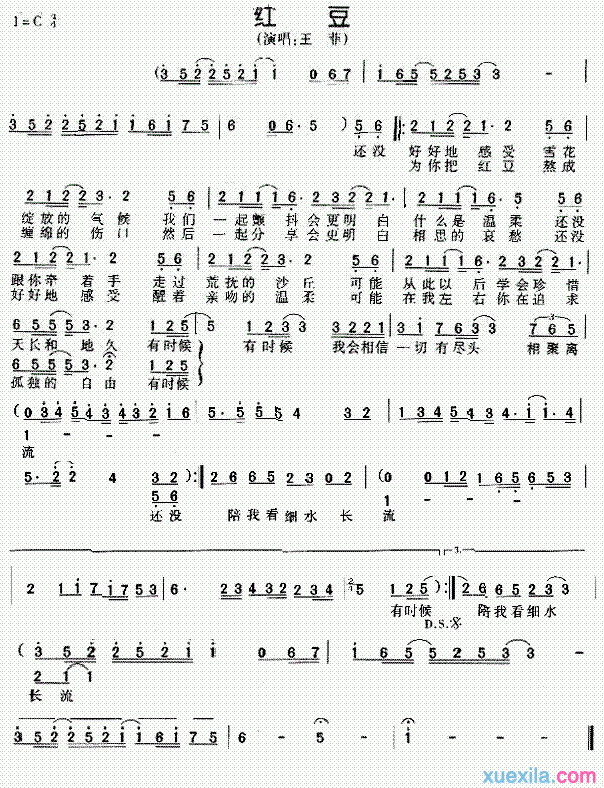 红 豆
1=C 4/4
(演唱:王 菲)
(3 5 2 2 5 2 1 1 0 6 7 | 1 6 5 5 2 5 3 3 - |
3 5 2 2 5 2 1 1 6 1 7 5 | 6 0 6· 5 ) 5 6 ‖: 2 1 2 2 1· 2 5 6 |
还没 好好地 感受 雪花
为你把 红豆 熬成
2 1 2 2 3· 2 5 6 | 2 1 1 1 6· 2 3 2 2 1 | 2 1 1 1 6· 5 5 6 |
绽放的 气候 我们 一起颤 抖会更明 白 什么是 温柔 还没
缠绵的 伤口 然后 一起分 享会更明 白 相思的 哀愁 还没
2 1 2 2 1· 2
跟你牵 着手 走过 荒扰的 沙丘 可能 从此以 后学会珍 惜
好好地 感受 醒着 亲吻的 温柔 可能 在我左 右你在追 求
6 5 5 5 5 3· 2 1 2 5 | 5 1 2 3 3 3 2 2 1
天长和 地久 有时候 有时候 我会相信 一切有尽头 相聚离
6 5 5 5 5 3· 2 1 2 5
孤独的 自由 有时候
(0 3 4 5 4 3 4 3 2 1 6 | 5· 5 5 5 4 3 2 |
1 - - -
流
5· 2 2 4 3 2 ) :‖ 2 6 6 5 2 3 0 2 | (0 0 0 1 2 1 6 5 6 5 3
5 6 1 - - -
还没 陪我看细水 长 流
3.
2 1 1 7 1 7 5 3 | 6· 2 3 4 3 2 2 3 4 | 5 1 2 5 ) :‖ 2 6 6 5 2 3 3
有时候 陪我看细水
D.S.
( 3 5 2 2 5 2 1 1 0 6 7 | 1 6 5 5 2 5 3 3 - |
2 1 1
长 流
3 5 2 2 5 2 1 1 6 1 7 5 | 6 - 5 - | 1 - - - ‖
xuexila.com